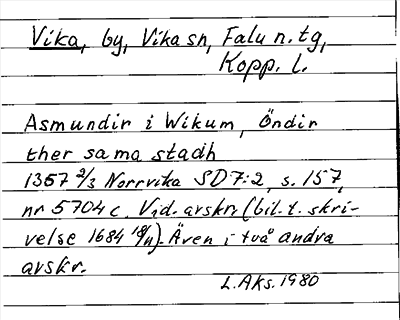 Vika, by, Vika sn, Falu n. tg,
Kopp. l.
Asmundir i Wikum, Öndir
ther sama stadh
1357 2/3 Norrvika SD 7:2, s. 157,
nr 5704 c. Vid. avskr. (bil. t. skri-
velse 1684 18/11). Även i två andra
avskr.
L. Aks. 1980